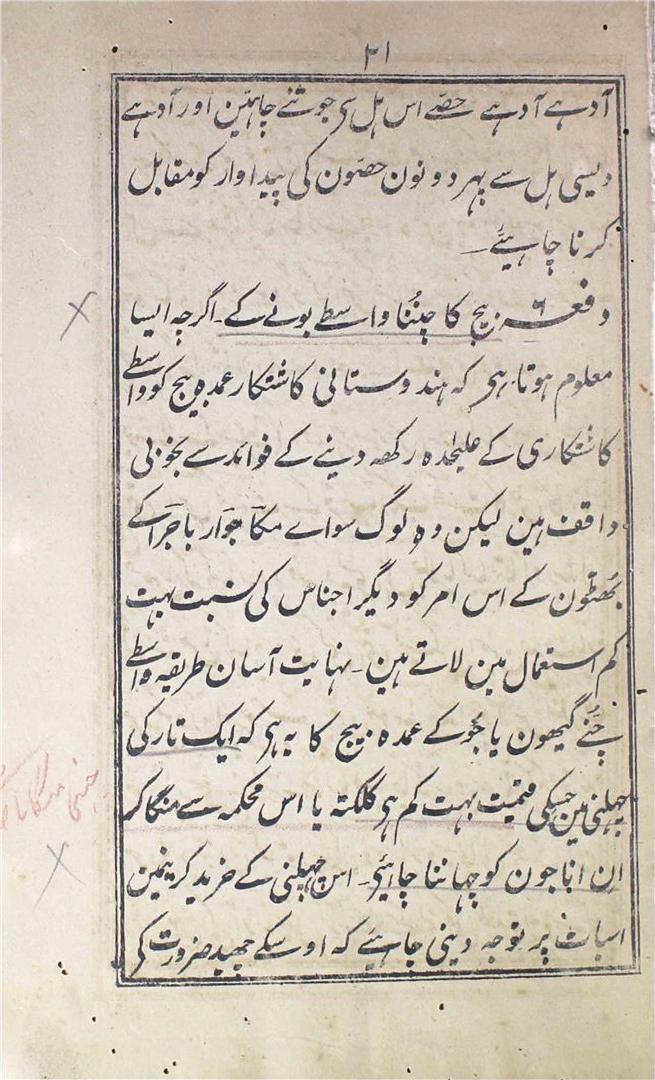 ۲۱
آدہے آدہے حصّے اس ہل سی جوتنے چاہئین اور آدہے
دیسی ہل سے پہر دونون حصّون کی پیداوار کو مقابل
کرنا چاہیئے۔
دفعہ ۶ بیج کا چننا واسطے بونے کے۔ اگرچہ ایسا
معلوم ہوتا ہی کہ ہندوستانی کاشتکار عمدہ بیج کو واسطے
کاشتکاری کے علیٰحدہ رکھہ دینے کے فوائد سے بخوبی
واقف ہین لیکن وہ لوگ سواے مکّا جوار باجرا کے
بھٹّون کے اس امر کو دیگر اجناس کی نسبت بہت
کم استعمال مین لاتے ہین۔ نہایت آسان طریقہ واسطے
چُننے گیہون یا جَو کے عمدہ بیج کا یہ ہی کہ ایک تار کی
چہلنی مین جسکی قیمت بہت کم ہی کلکتہ یا اس محکمہ سے منگا کر
ان اناجون کو چہاننا چاہیٔی۔ اس چہلنی کے خرید کرینمین
اسبات پر توجہ دینی چاہیئے کہ اوسکے چہید ضرورت کی